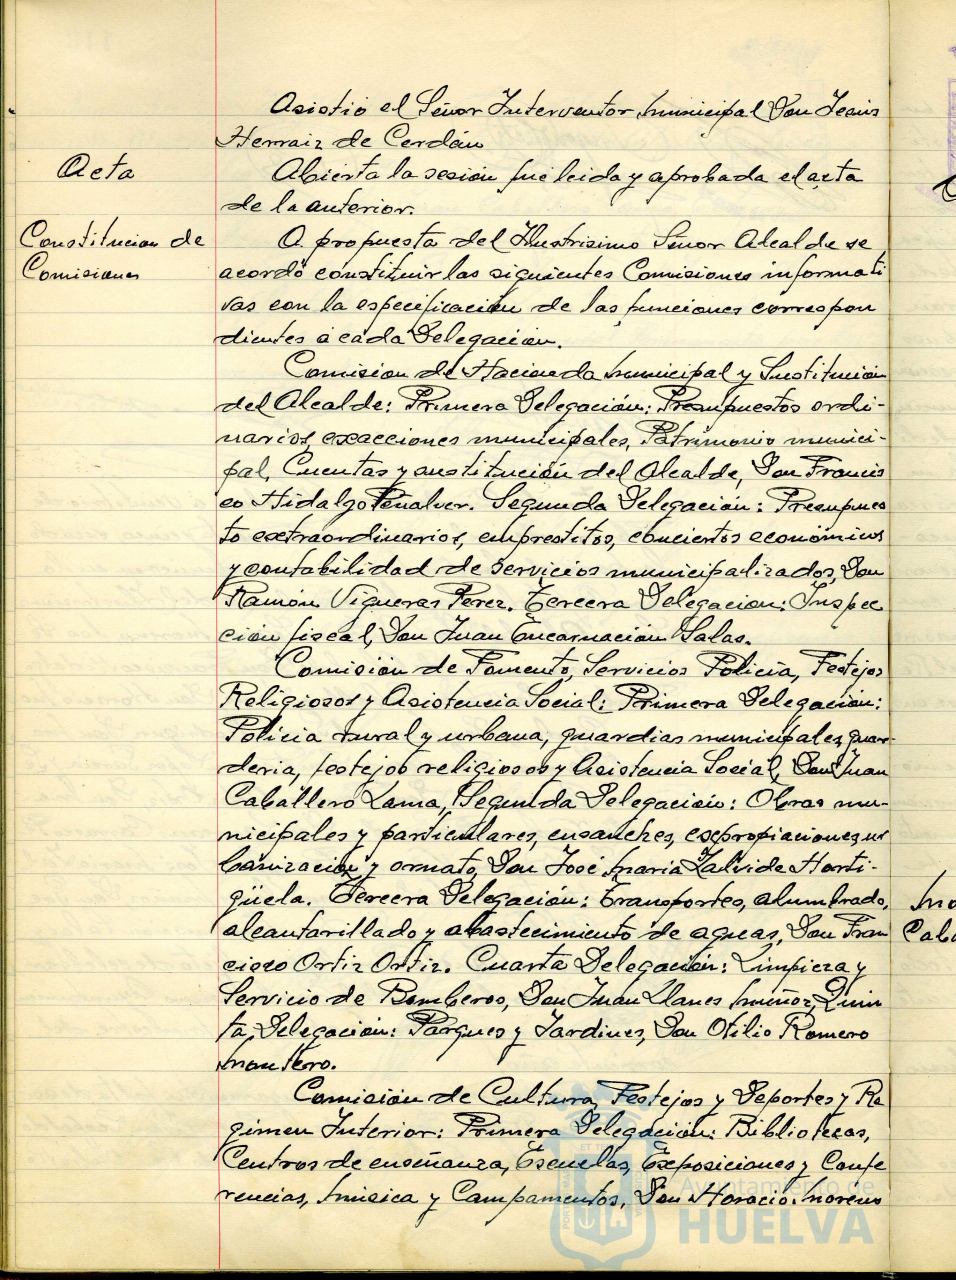 Asistió el Señor Interventor Municipal Don Jesús
Herraiz de Cerdán
Acta
Abierta la sesión fué leida y aprobada el acta
de la anterior.
Constitucion de
Comisiones
A propuesta del Ilustrisimo Señor Alcalde se
acordó constituir las siguientes Comisiones informati
vas con la especificación de las funciones correspon
dientes á cada Delegación.
Comision de Hacienda Municipal y Sustitución
del Alcalde: Primera Delegación: Presupuestos ordi-
narios, exacciones municipales, Patrimonio munici-
pal, Cuentas y sustitución del Alcalde, Don Francis
co Hidalgo Peñalver. Segunda Delegación: Presupues
to extraordinarios, emprestitos, conciertos económicos
y contabilidad de servicios municipalizados, Don
Ramón Vigueras Perez. Tercera Delegacion: Inspec
ción fiscal, Don Juan Encarnación Salas.
Comisión de Fomento, Servicios Policía, Festejos
Religiosos y Asistencia Social: Primera Delegación:
Policia rural y urbana, guardias municipales, guar-
deria, festejos religiosos y Asistencia Social, Don Juan
Caballero Lama, Segunda Delegación: Obras mu-
nicipales y particulares, ensanches, expropiaciones, ur
banización y ornato, Don José Maria Zalvide Horti-
güela. Tercera Delegación: Transportes, alumbrado,
alcantarillado y abastecimiento de aguas, Don Fran
cisco Ortiz Ortiz. Cuarta Delegación: Limpieza y
Servicio de Bomberos, Don Juan Llanes Muñoz, Quin
ta, Delegación: Parques y Jardines, Don Otilio Romero
Montero.
Comisión de Cultura, Festejos y Deportes y Re
gimen Interior: Primera Delegación: Bibliotecas,
Centros de enseñanza, Escuelas, Exposiciones y Confe
rencias, Música y Campamentos, Don Horacio Moreno
Ayuntamiento de
HUELVA